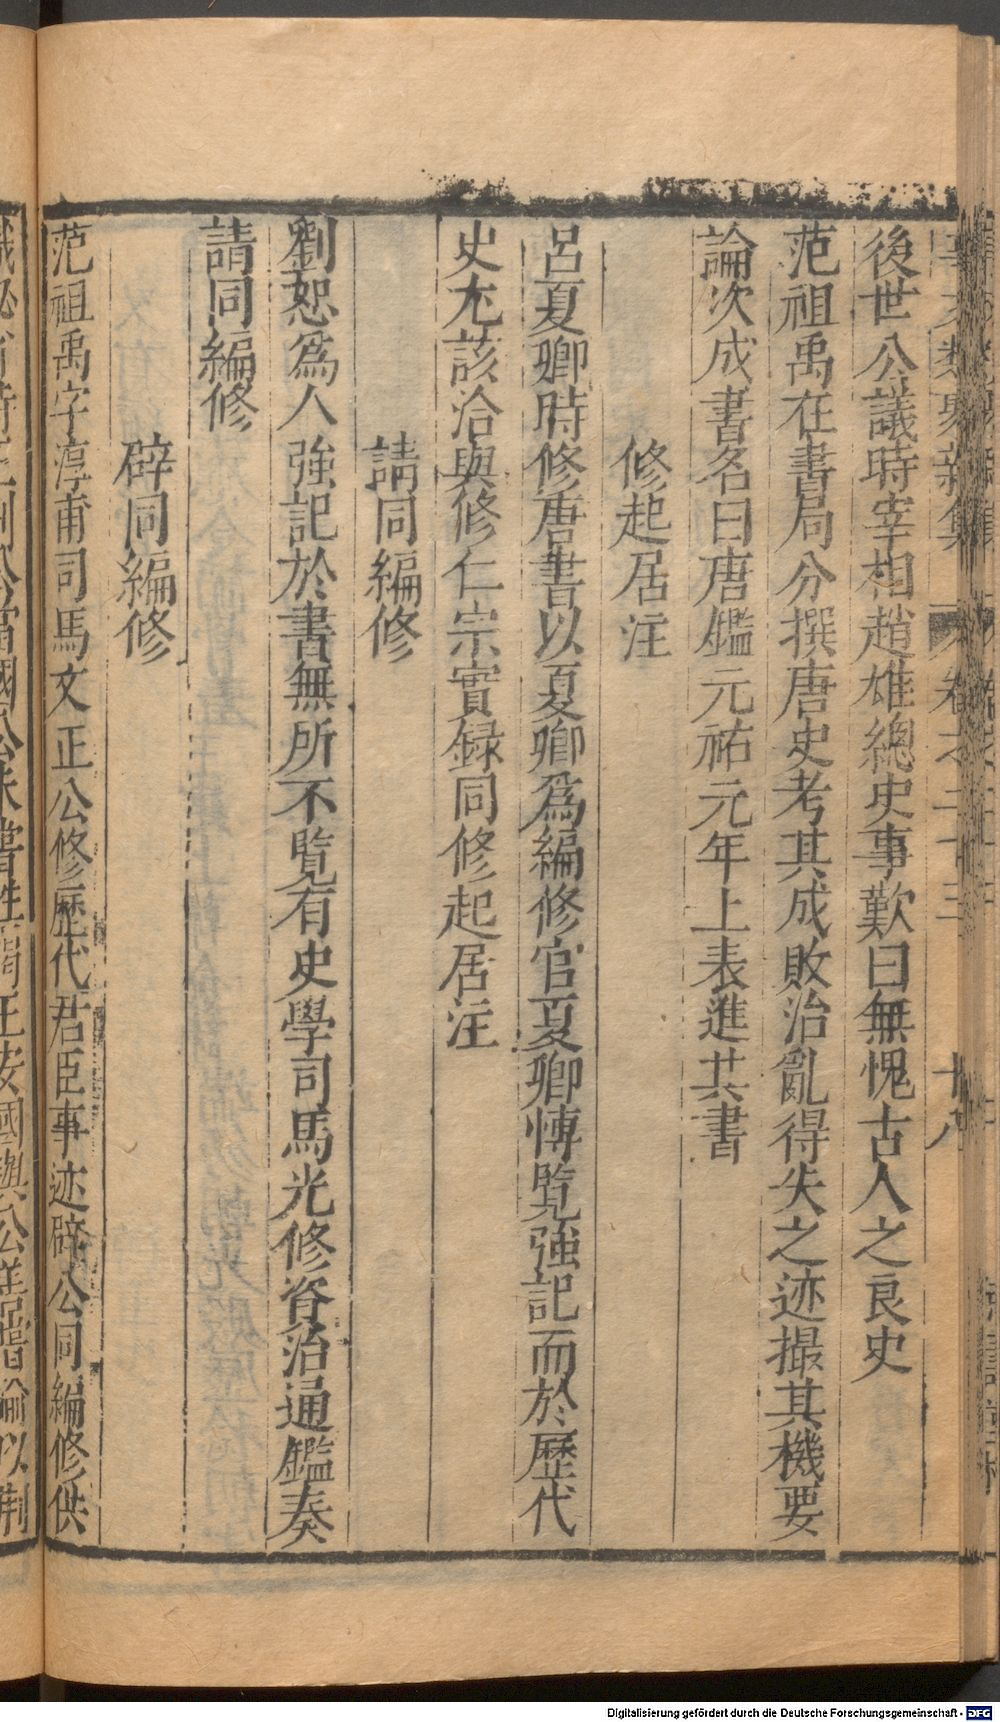 事文類聚新集 卷之二十三 十八
後世公議時宰相趙雄總史事歎曰無愧古人之良史
范祖禹在書局分撰唐史考其成敗治亂得失之迹撮其機要
論次成書名曰唐鑑元祐元年上表進其書
修起居注
呂夏卿時修唐書以夏卿爲編修官夏卿愽覧強記而於歷代
史尤該洽與修仁宗實録同修起居注
請同編修
劉恕爲人強記於書無所不覧有史學司馬光修資治通鑑奏
請同編修
辟同編修
范祖禹字淳甫司馬文正公修歷代君臣事迹辟公同編修供
公當國公未嘗往謁王安國與公善嘗諭以荆
Digitalisierung gefördert durch die Deutsche Forschungsgemeinschaft - DFG